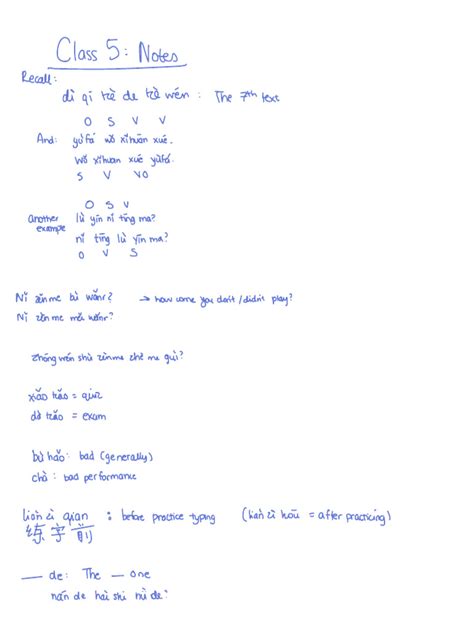 Class 5: Notes
Recall:
dì qī kè de kè wén : The 7th text
O S V V
And: yǔfǎ wǒ xǐhuān xué.
wǒ xǐhuan xué yǔfǎ.
S V VO
O S V
another example
lù yīn nǐ tīng ma?
nǐ tīng lù yīn ma?
O V S
Nǐ zěnme bù wánr? → how come you don't/didn't play?
Nǐ zěnme méi wánr?
zhōngwén shū zěnme zhè me guì?
xiǎo kǎo = quiz
dà kǎo = exam
bù hǎo: bad (generally)
chà : bad performance
liàn zì qián : before practice typing (liàn zì hòu = after practicing)
练字前
— de: The — one
nán de hái shi nǚ de: